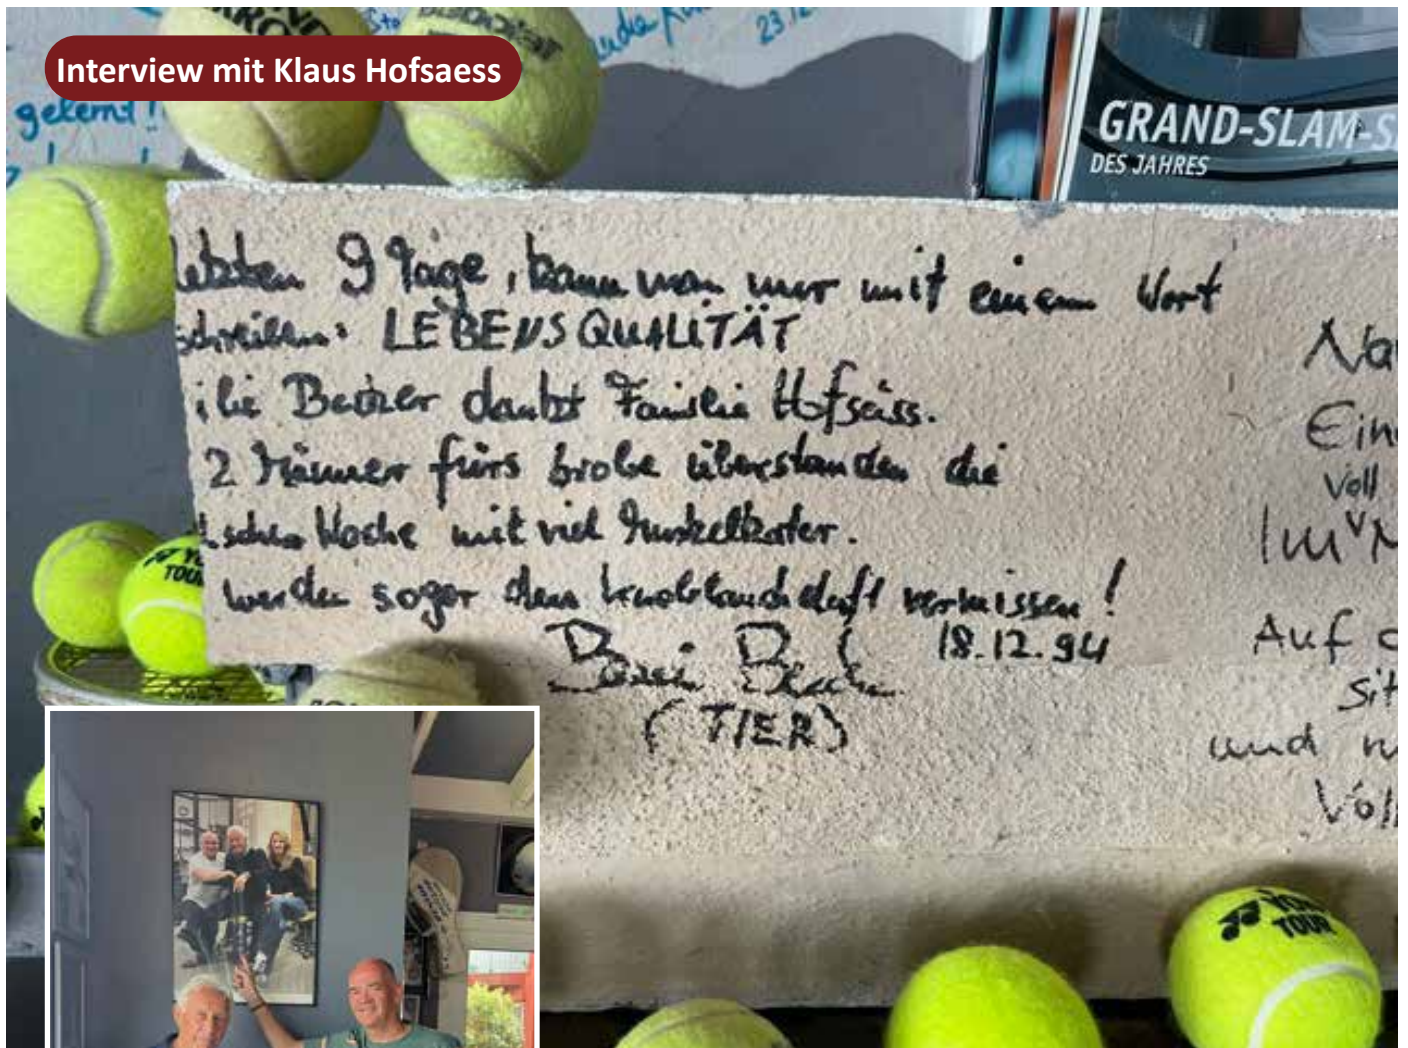 Interview mit Klaus Hofsaess
23.12.
gelernt!
GRAND-SLAM-S
DES JAHRES
letzten 9 Tage, kann man nur mit einem Wort
schreiben: LEBENSQUALITÄT
ilie Becker dankt Familie Hofsäss.
2 Männer fürs Grobe überstanden die
Woche mit viel Muskelkater.
werden sogar den Knoblauchduft vermissen!
18.12.94
(TIER)
Na
Ein
Voll
Im
Auf
sit
und
Voll
TOUR
YONEX
TOUR